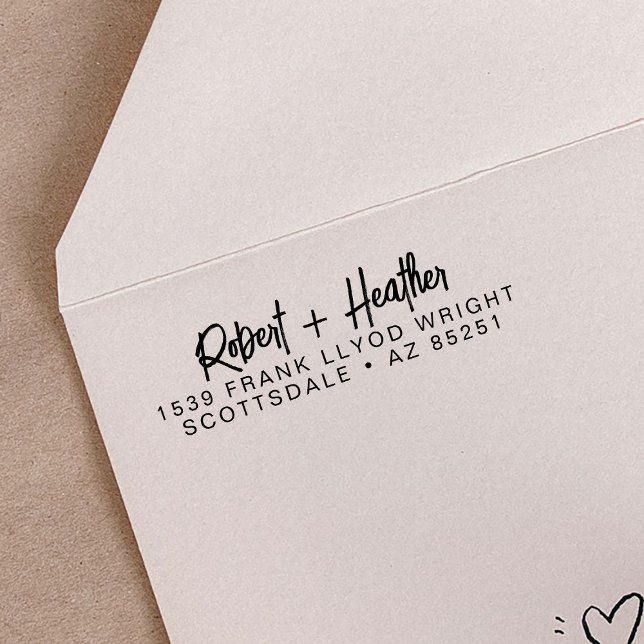 Robert + Heather
1539 FRANK LLYOD WRIGHT
SCOTTSDALE • AZ 85251